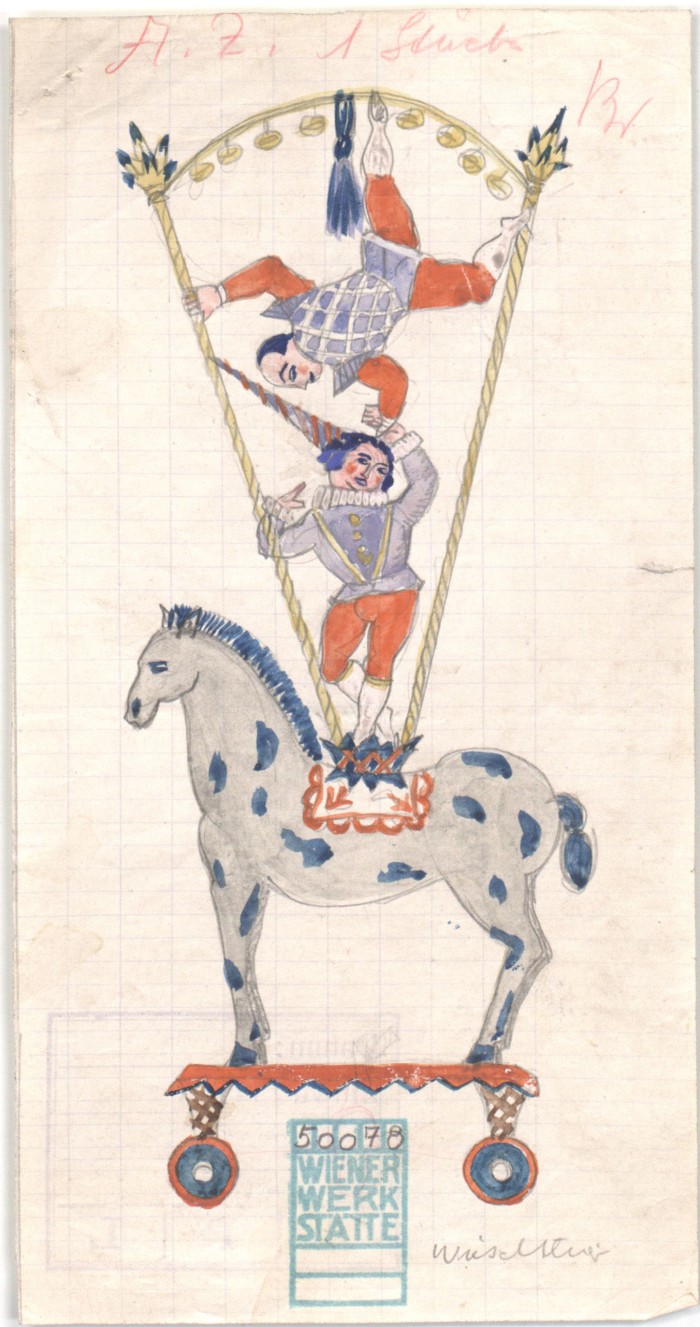 A. Z. 1 Stück
Br
50078
WIENER
WERK
STÄTTE